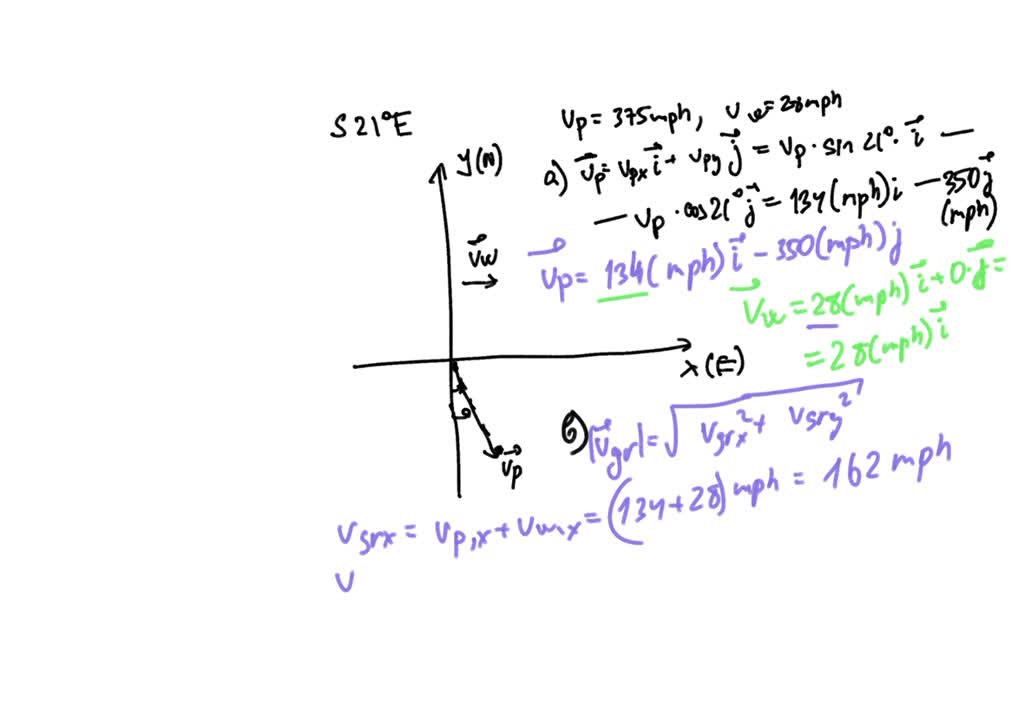 S 21°E
Vp = 375mph, Vw = 28mph
y(N)
a) V⃗p = Vpx i⃗ + Vpy j⃗ = Vp · sin 21° · i⃗ —
— Vp · cos 21° j⃗ = 134(mph)i — 350 j⃗
(mph)
V⃗w
V⃗p = 134(mph) i⃗ – 350(mph) j
V⃗w = 28(mph) i⃗ + 0 · j⃗ =
= 28(mph) i⃗
x(E)
V⃗p
b) |V⃗gr| = √Vgrx² + Vgry²
Vgrx = Vp,x + Vw,x = (134+28) mph = 162 mph
V